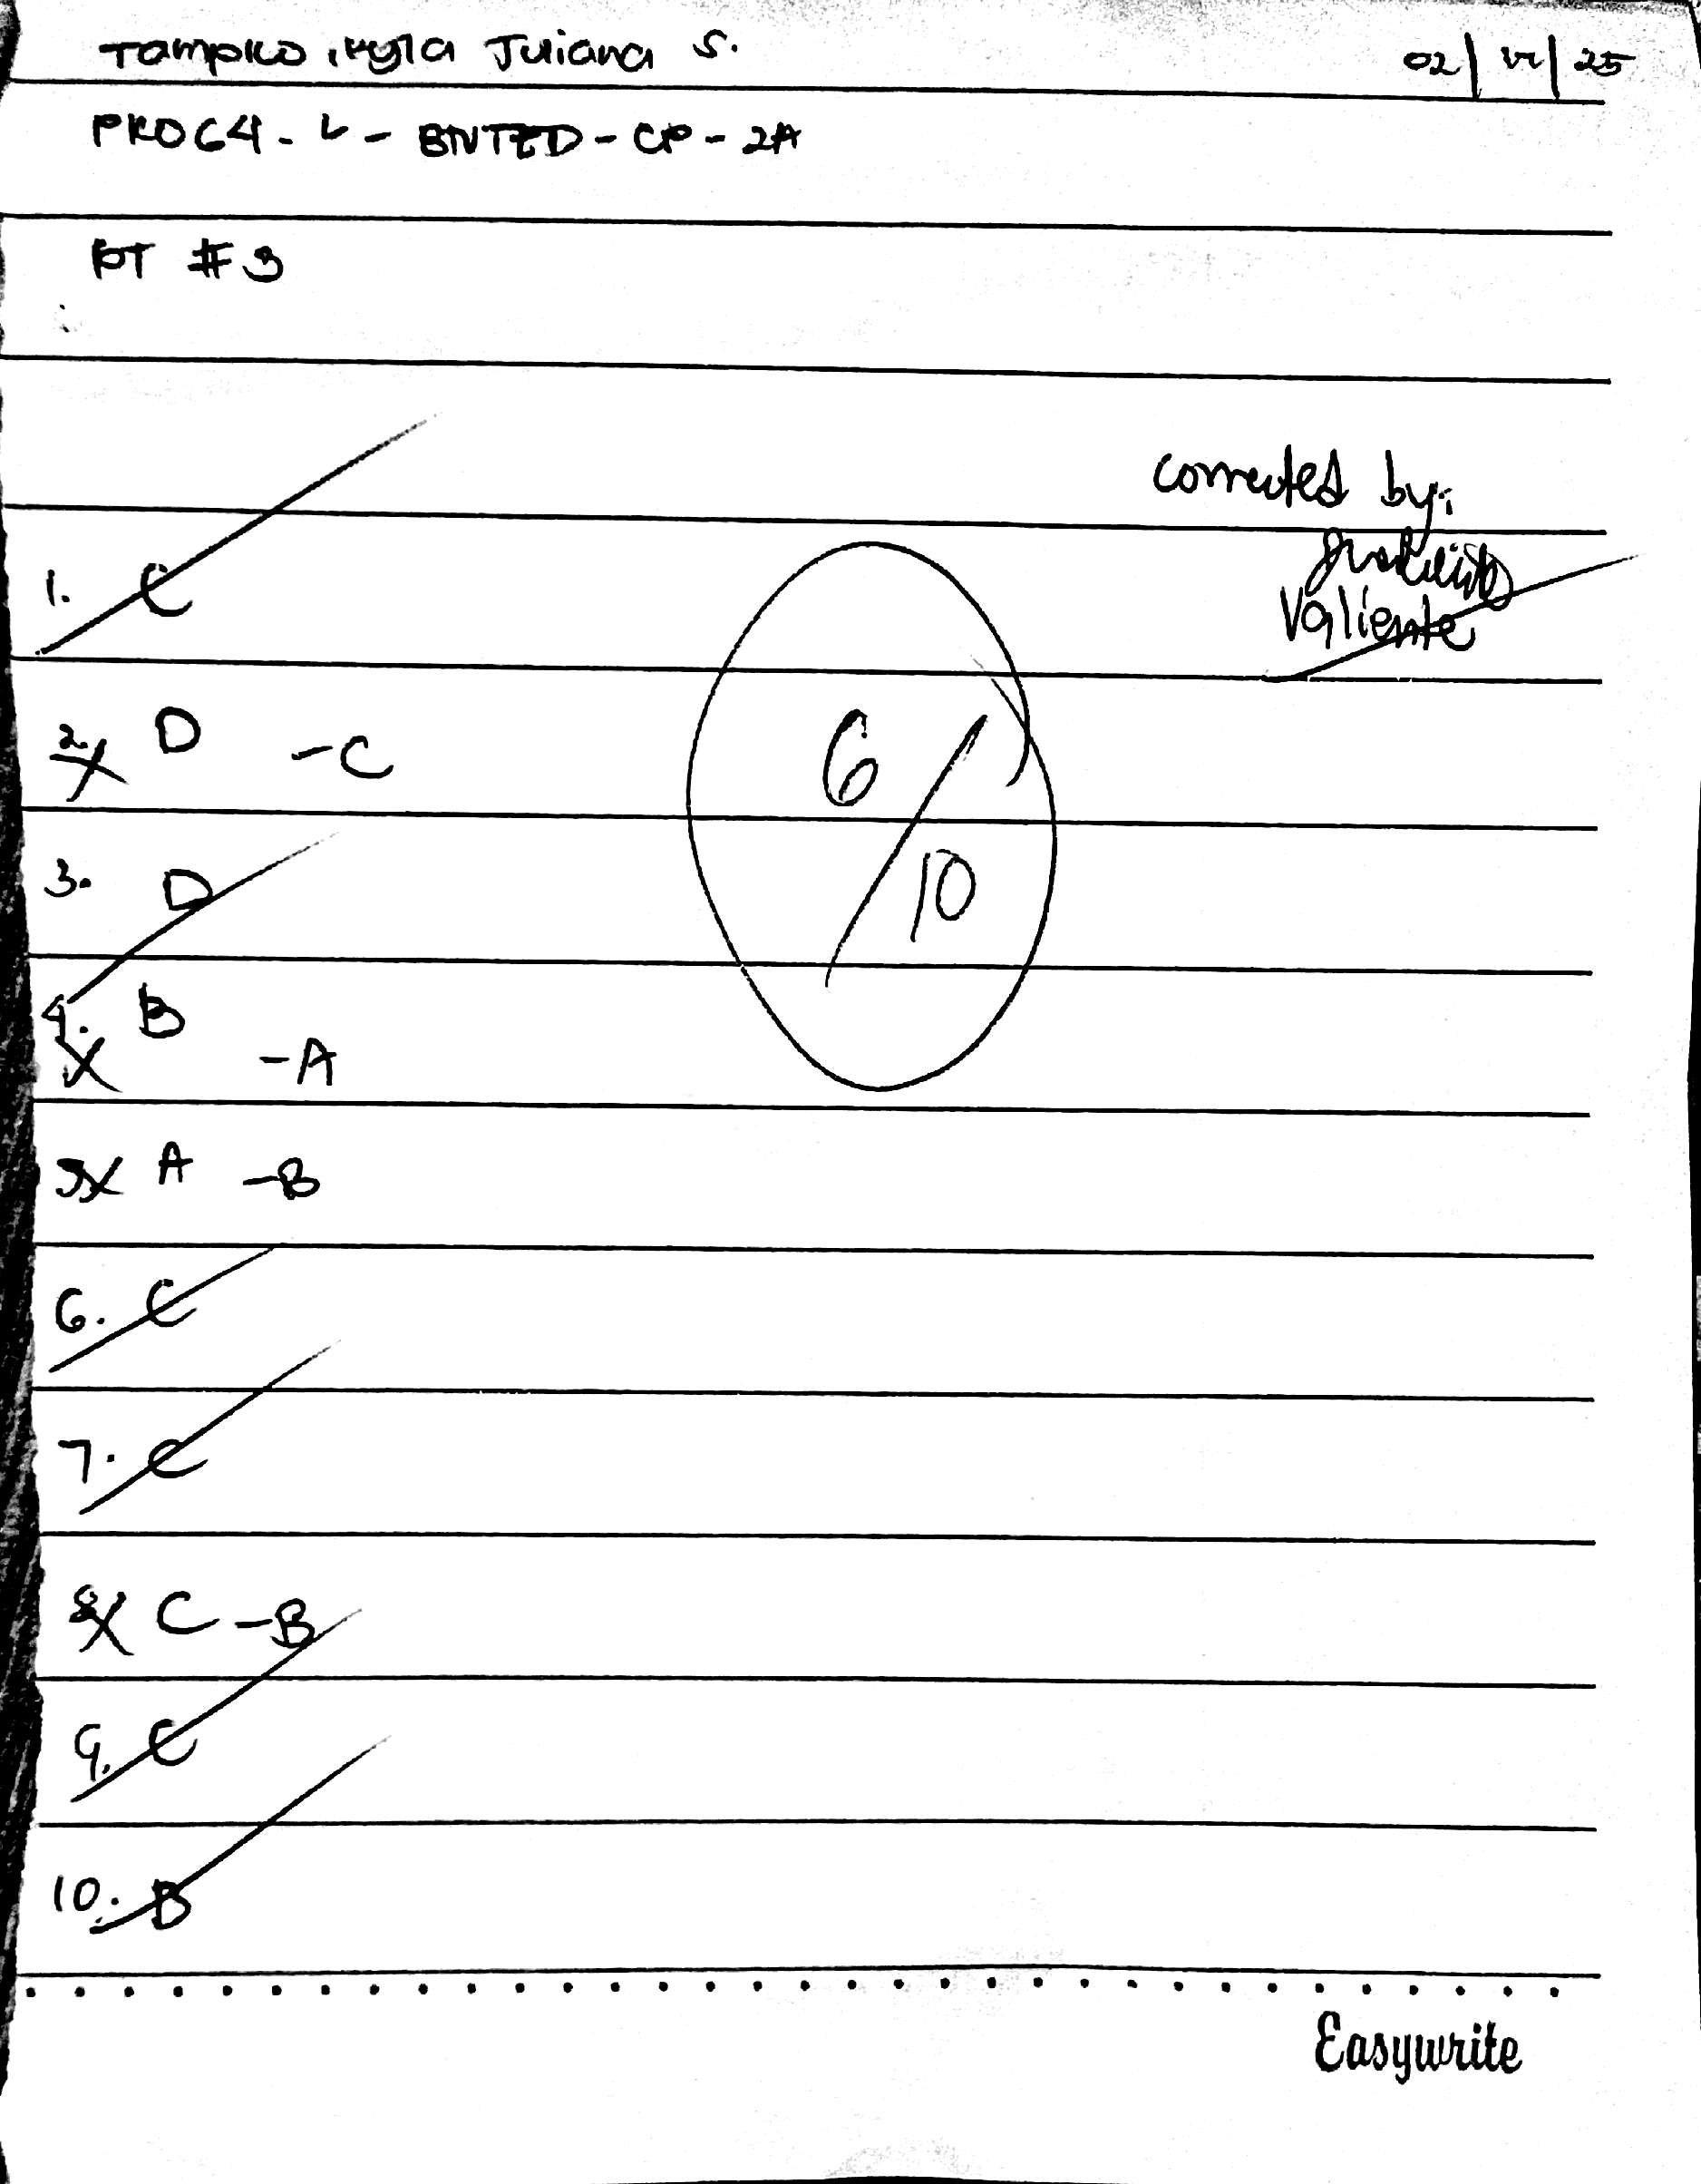 Tampico, Kyla Juliana S.
02 / /25
PROG4 - L - BTVTED - CP - 2A
PT #3
corrected by:
Valiente
1. C
2. D - C
3. D
4. B
- A
5. A - B
6. C
7. C
8. C - B
9. C
10. B
6/10
Easywrite